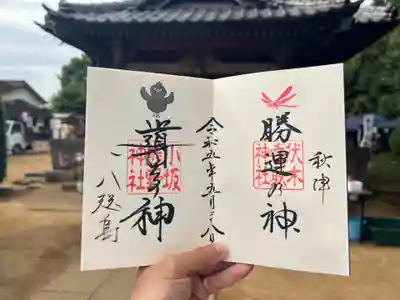 秋津
勝運の神
伏木
神社
令和五年五月二八日
道祖神
小坂
神社
八咫烏